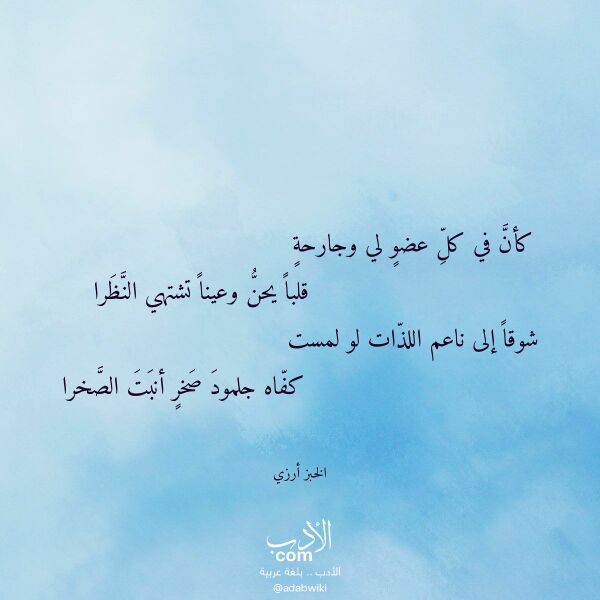 كأنَّ في كلِّ عضوٍ لي وجارحةٍ
قلباً يحنُّ وعيناً تشتهي النَّظَرا
شوقاً إلى ناعم اللذّات لو لمست
كفّاه جلمودَ صَخرٍ أنبَتَ الصَّخرا
الخبز أرزي
الأدب
com
الأدب .. بلغة عربية
@adabwiki